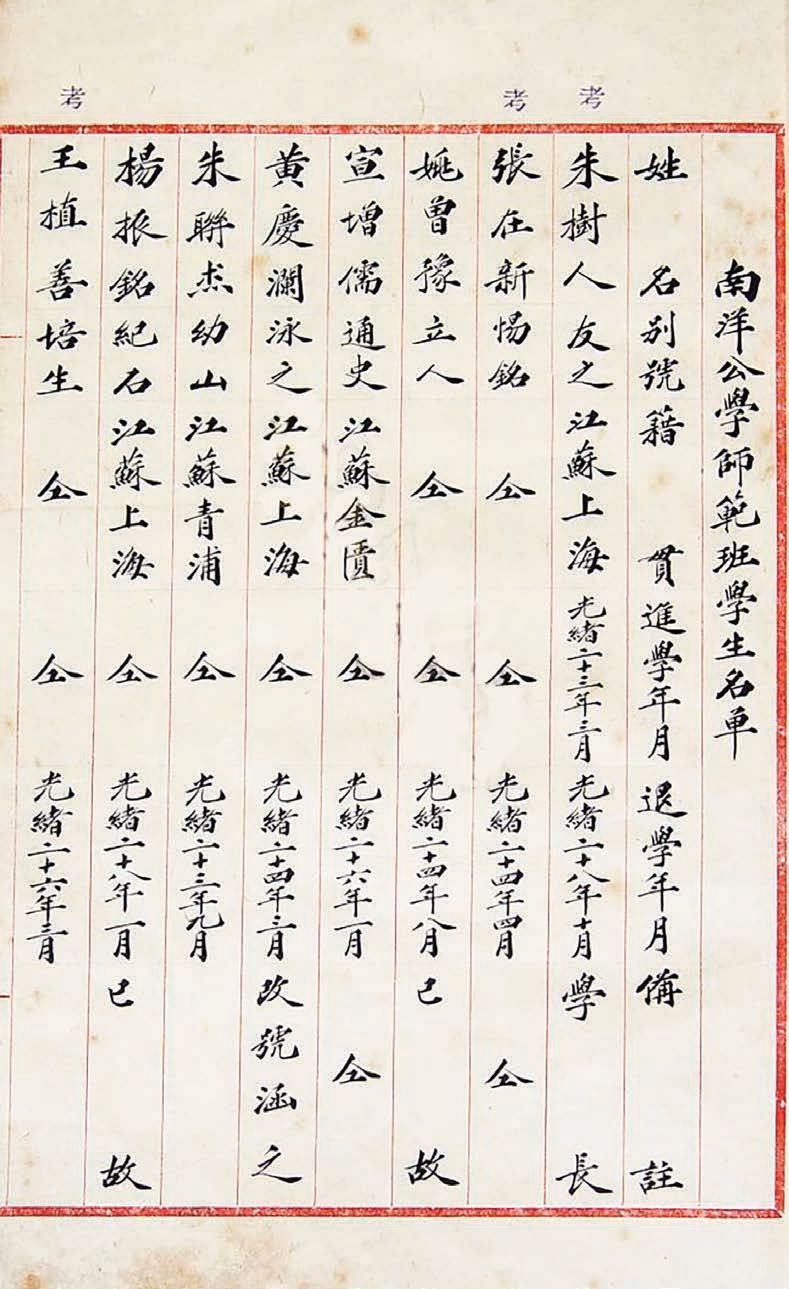 南洋公學師範班學生名单
姓名别號籍貫進學年月退學年月備註
考
朱樹人友之江蘇上海光緒二十三年三月光緒二十八年十月學長
考
張在新惕銘仝仝光緒二十四年四月仝
姚曾豫立人仝仝光緒二十四年八月已故
宣增儒通史江蘇金匱仝光緒二十六年一月仝
黃慶瀾泳之江蘇上海仝光緒二十四年三月改號涵之
朱聯杰幼山江蘇青浦仝光緒二十三年九月
楊振銘紀石江蘇上海仝光緒二十八年一月已故
考
王植善培生仝仝光緒二十六年三月